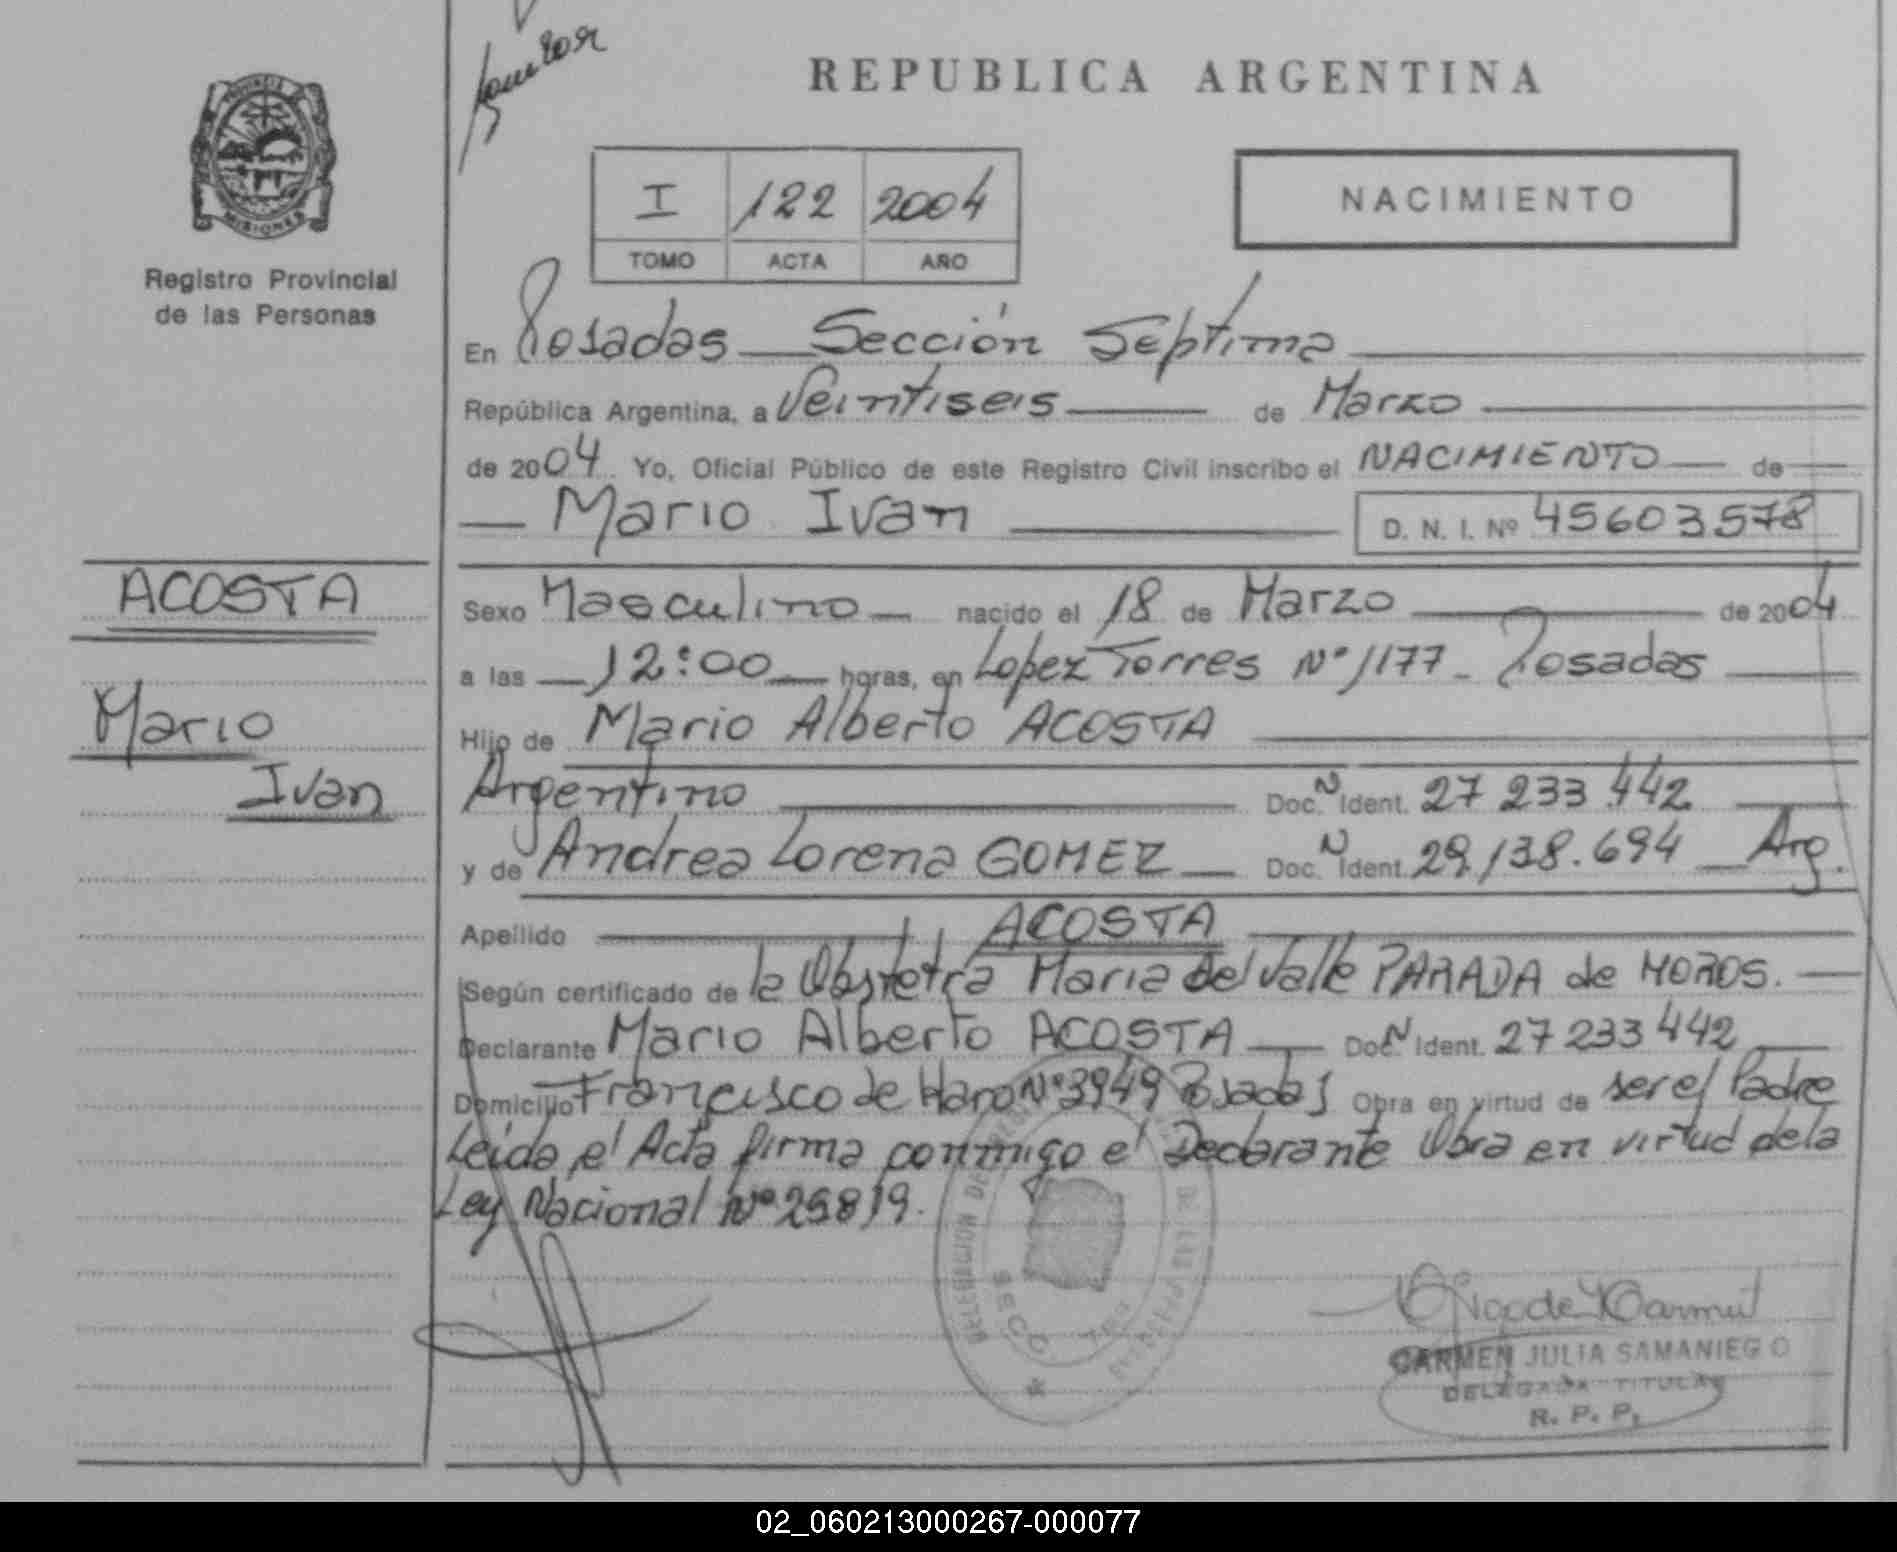 REPUBLICA ARGENTINA
PROVINCIA DE
MISIONES
Registro Provincial
de las Personas
I 122 2004
TOMO ACTA AÑO
NACIMIENTO
En Posadas Sección Septima
República Argentina, a Veintiseis de Marzo
de 2004 Yo, Oficial Público de este Registro Civil inscribo el NACIMIENTO de
Mario Ivan D. N. I. Nº 45603578
ACOSTA
Mario
Ivan
Sexo Masculino nacido el 18 de Marzo de 2004
a las 12:00 horas, en Lopez Torres Nº 1177 - Posadas
Hijo de Mario Alberto ACOSTA
Argentino Doc. N Ident. 27 233 442
y de Andrea Lorena GOMEZ Doc. N Ident. 29.138.694 Arg.
Apellido ACOSTA
Según certificado de la Obstetra Maria del Valle PARADA de MOROS.
Declarante Mario Alberto ACOSTA Doc. N Ident. 27 233 442
Domicilio Francisco de Haro Nº 3949 Posadas Obra en virtud de ser el Padre
Leida el Acta firma conmigo el Declarante Obra en virtud de la
Ley Nacional Nº 25819.
DE LAS PERSONAS
SECC.
CARMEN JULIA SAMANIEGO
DELEGADA TITULAR
R. P. P.
02_060213000267-000077